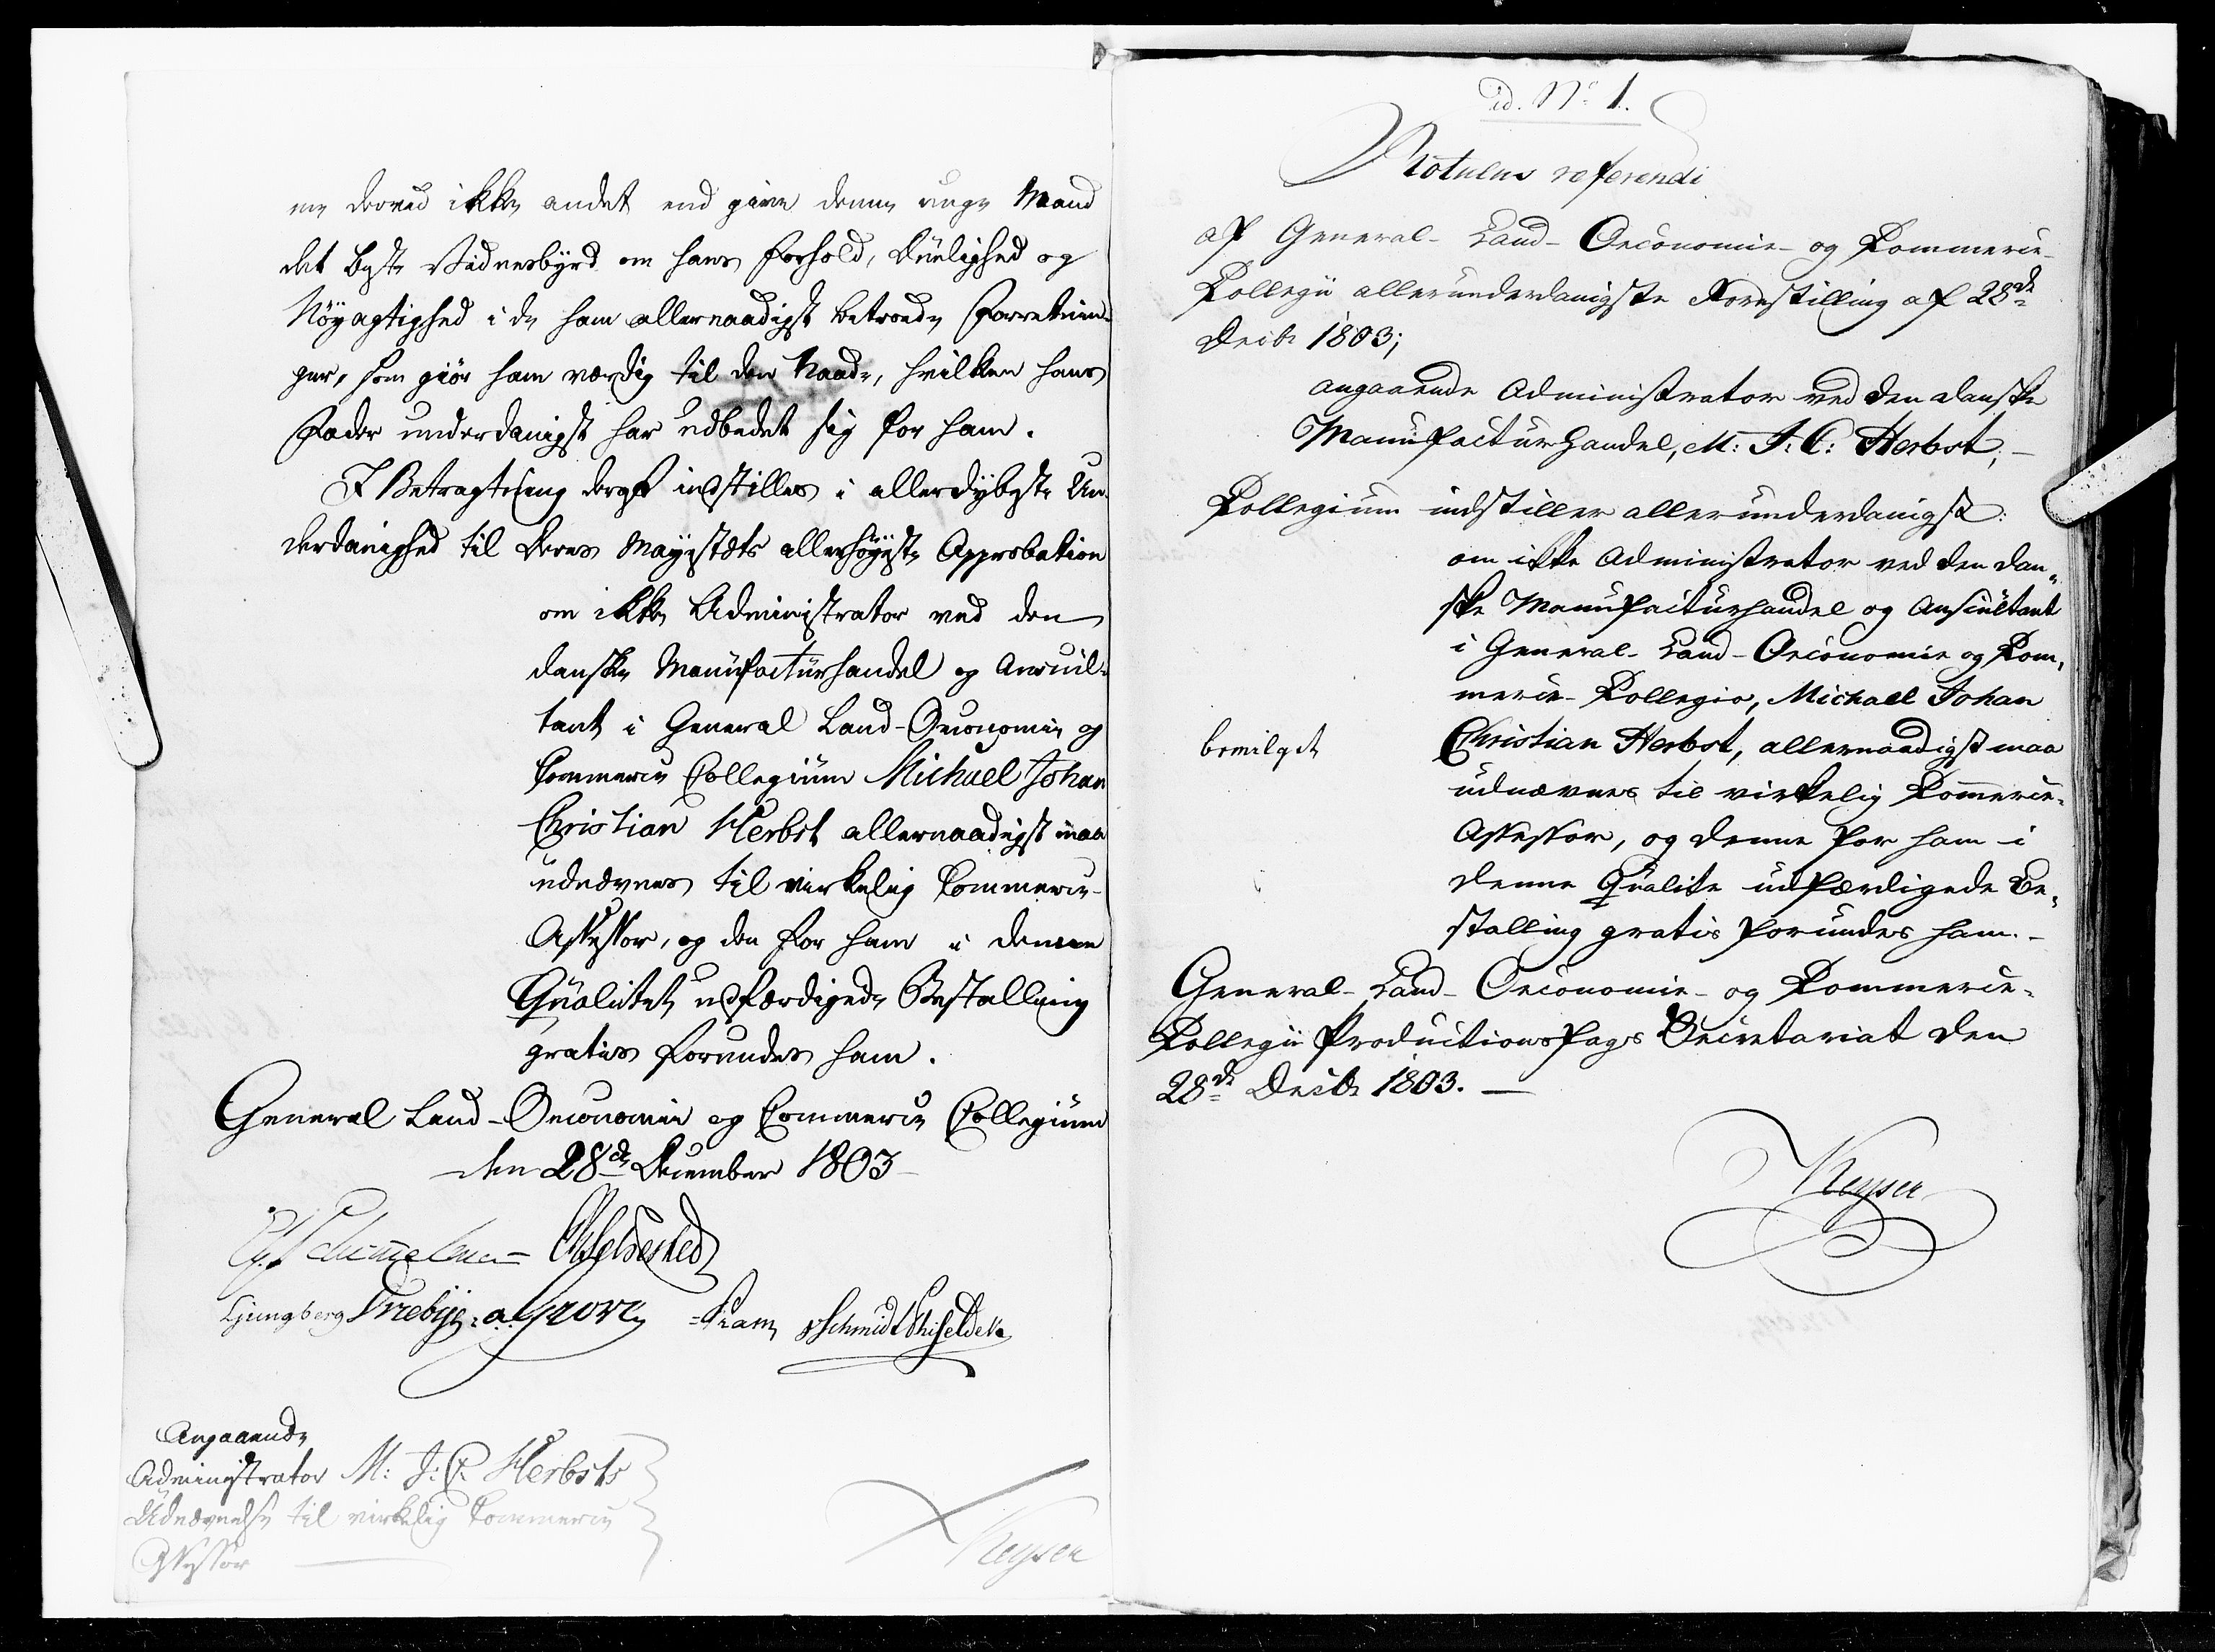 derved ikke andet end give denne unge Mand
det beste Vidnesbyrd om hans Forhold, Duelighed og
Nöyagtighed i de ham allernaadigst betroede Forretnin-
ger, som giör ham værdig til den Naade, hvilken hans
Fader underdanigst har udbedet sig for ham.
I Betragtning deraf indstilles i allerdybeste Un-
derdanighed til Deres Majestæts allerhöyeste Approbation
om ikke Administrator ved den
danske Manufacturhandel og Auscul-
tant i General Land-Oeconomie og
Commerce Collegium Michael Johan
Christian Herbst allernaadigst maa
udnævnes til virkelig Commerce-
Assessor, og den for ham i denne
Qualitet udfærdigede Bestalling
gratis forundes ham.
General Land-Oeconomie og Commerce Collegium
den 28de December 1803
Schimmelmann
Ljungberg Triebye Pram Schmidt Phiseldek
Angaaende
Administrator M: J: C: Herbsts
Udnævnelse til virkelig Commerce
Assessor
Keyser
ad. No. 1.
Rotulus referendi
af General-Land-Oeconomie- og Kommerce-
Kollegii allerunderdanigste Forestilling af 28de
Decbr 1803;
angaaende Administrator ved den danske
Manufacturhandel, M: J: C: Herbst;
Kollegium indstiller allerunderdanigst:
om ikke Administrator ved den dan-
ske Manufacturhandel og Auscultant
i General-Land-Oeconomie og Kom-
merce-Kollegio, Michael Johan
bevilget
Christian Herbst, allernaadigst maa
udnævnes til virkelig Kommerce-
Assessor, og denne for ham i
denne Qualite udfærdigede Be-
stalling gratis forundes ham.
General-Land-Oeconomie- og Kommerce-
Kollegii Productionsfags Secretariat den
28de Decbr 1803.
Keyser